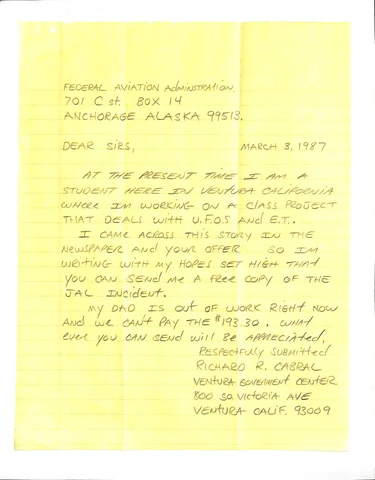 FEDERAL AVIATION ADMINSTRATION.
701 C st. BOX 14
ANCHORAGE ALASKA 99513.
DEAR SIRS, MARCH 3, 1987
AT THE PRESENT TIME I AM A
STUDENT HERE IN VENTURA CALIFORNIA
WHERE IM WORKING ON A CLASS PROJECT
THAT DEALS WITH U.F.OS AND E.T..
I CAME ACROSS THIS STORY IN THE
NEWSPAPER AND YOUR OFFER SO IM
WRITING WITH MY HOPES SET HIGH THAT
YOU CAN SEND ME A FREE COPY OF THE
JAL INCIDENT.
MY DAD IS OUT OF WORK RIGHT NOW
AND WE CAN'T PAY THE $193.30. WHAT
EVER YOU CAN SEND WILL BE APPRECIATED.
RESPECTFULLY SUBMITTED
RICHARD R. CABRAL
VENTURA GOVERMENT CENTER
800 SO. VICTORIA AVE
VENTURA CALIF. 93009